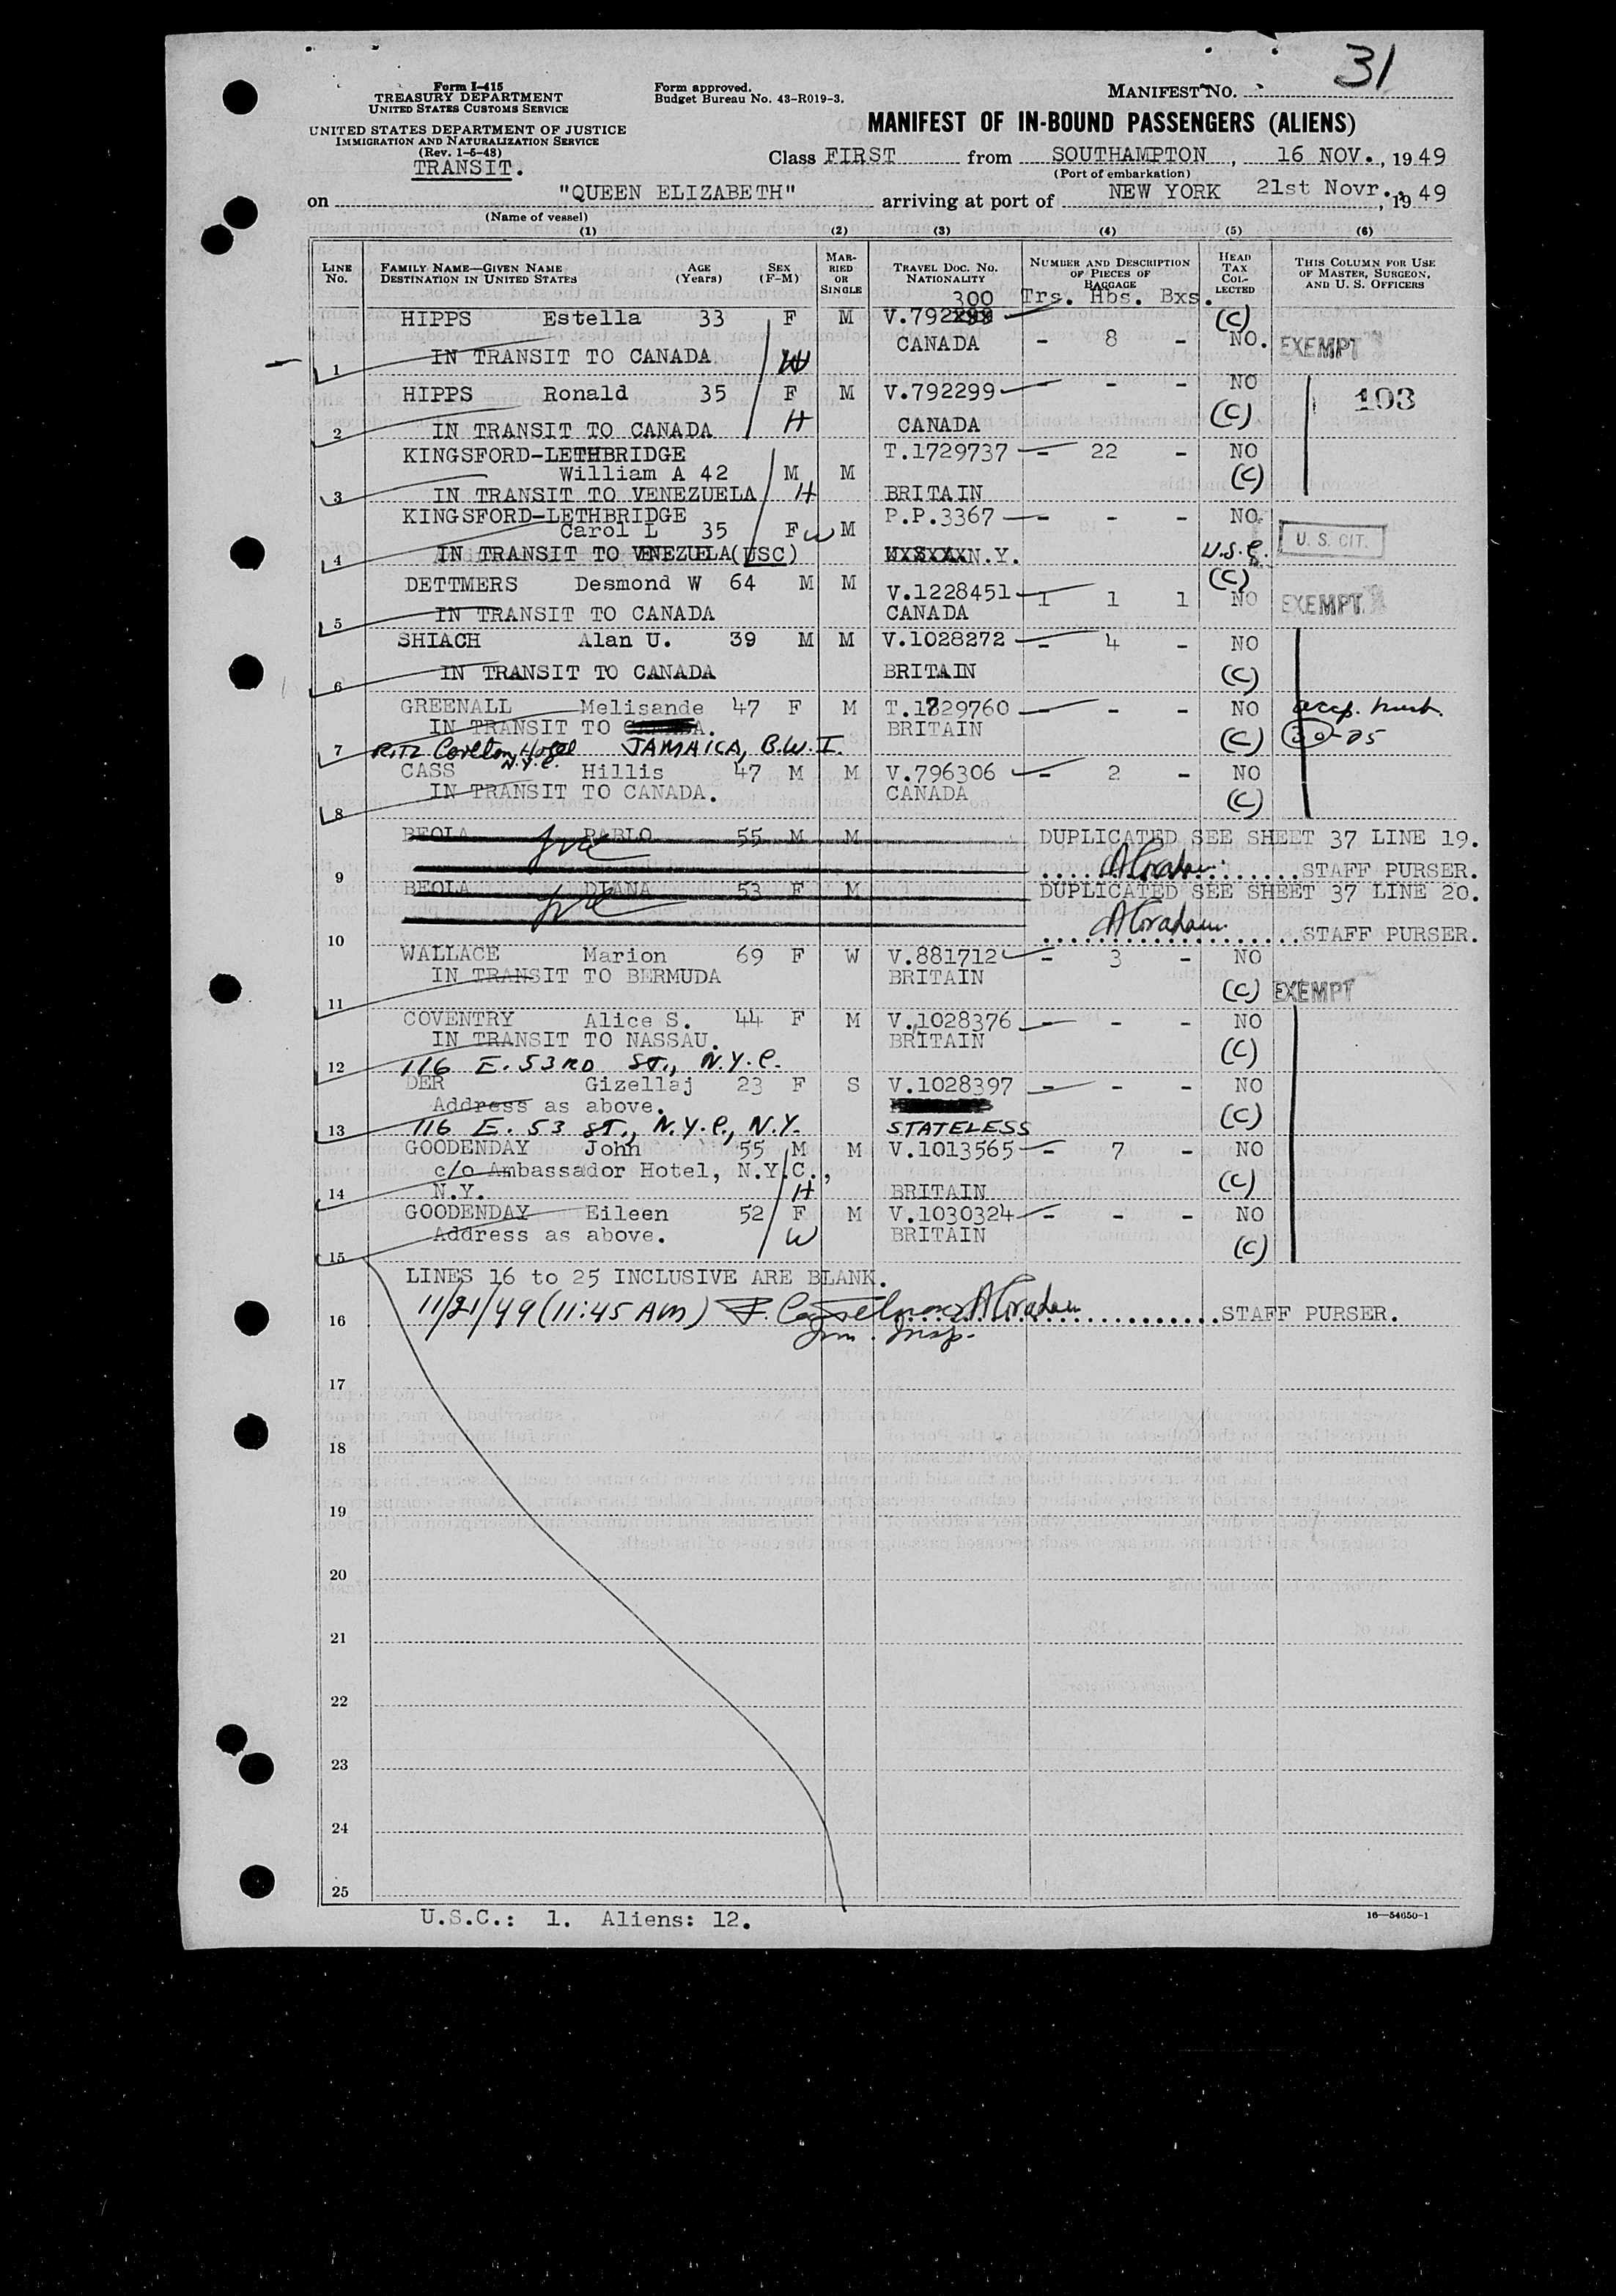 31
Form I-415
TREASURY DEPARTMENT
UNITED STATES CUSTOMS SERVICE
UNITED STATES DEPARTMENT OF JUSTICE
IMMIGRATION AND NATURALIZATION SERVICE
(Rev. 1-5-48)
TRANSIT.
Form approved.
Budget Bureau No. 43-R019-3.
MANIFEST NO.
MANIFEST OF IN-BOUND PASSENGERS (ALIENS)
Class FIRST from SOUTHAMPTON, 16 NOV., 1949
(Port of embarkation)
on "QUEEN ELIZABETH" arriving at port of NEW YORK 21st Novr., 1949
(Name of vessel)
(1) (2) (3) (4) (5) (6)
LINE NO. FAMILY NAME—GIVEN NAME DESTINATION IN UNITED STATES AGE (Years) SEX (F-M) MARRIED OR SINGLE TRAVEL DOC. NO. NATIONALITY NUMBER AND DESCRIPTION OF PIECES OF BAGGAGE HEAD TAX COLLECTED THIS COLUMN FOR USE OF MASTER, SURGEON, AND U. S. OFFICERS
300 Trs. Hbs. Bxs.
HIPPS Estella 33 F M V.792 (C)
CANADA - 8 - NO. EXEMPT
1 IN TRANSIT TO CANADA W
HIPPS Ronald 35 F M V.792299 - - - NO 103
2 IN TRANSIT TO CANADA H CANADA (C)
KINGSFORD-LETHBRIDGE T.1729737 - 22 - NO
William A 42 M M (C)
3 IN TRANSIT TO VENEZUELA H BRITAIN
KINGSFORD-LETHBRIDGE P.P.3367 - - - NO.
Carol L 35 F W M U. S. CIT.
4 IN TRANSIT TO VENEZUELA(USC) N.Y. U.S.C.
DETTMERS Desmond W 64 M M V.1228451 1 1 1 (C) NO EXEMPT
5 IN TRANSIT TO CANADA CANADA
SHIACH Alan U. 39 M M V.1028272 - 4 - NO
6 IN TRANSIT TO CANADA BRITAIN (C)
GREENALL Melisande 47 F M T.1829760 - - - NO accp. husb.
IN TRANSIT TO BRITAIN
7 Ritz Carlton Hotel N.Y.C. JAMAICA, B.W.I. (C) 30-05
CASS Hillis 47 M M V.796306 - 2 - NO
8 IN TRANSIT TO CANADA. CANADA (C)
BEOLA PABLO 55 M M DUPLICATED SEE SHEET 37 LINE 19.
9 AGraham STAFF PURSER.
BEOLA DIANA 53 F M DUPLICATED SEE SHEET 37 LINE 20.
10 AGraham STAFF PURSER.
WALLACE Marion 69 F W V.881712 - 3 - NO
IN TRANSIT TO BERMUDA BRITAIN
11 (C) EXEMPT
COVENTRY Alice S. 44 F M V.1028376 - - - NO
IN TRANSIT TO NASSAU. BRITAIN
12 116 E. 53RD ST., N.Y.C. (C)
DER Gizellaj 23 F S V.1028397 - - - NO
Address as above. (C)
13 116 E. 53 ST., N.Y.C., N.Y. STATELESS
GOODENDAY John 55 M M V.1013565 - 7 - NO
c/o Ambassador Hotel, N.Y.C.,
14 N.Y. H BRITAIN (C)
GOODENDAY Eileen 52 F M V.1030324 - - - NO
Address as above. W BRITAIN
15 (C)
LINES 16 to 25 INCLUSIVE ARE BLANK.
16 11/21/49 (11:45 AM) AGraham STAFF PURSER.
Imm. Insp.
17
18
19
20
21
22
23
24
25
U.S.C.: 1. Aliens: 12.
16—54650-1